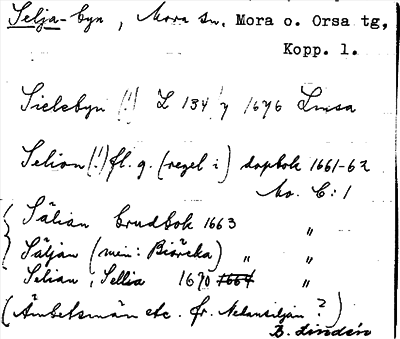 Selja-byn, Mora sn. Mora o. Orsa tg,
Kopp. l.
Sielebyn (!) L 134 y 1676 Lmsa
Selion (!) fl. g. (regel i) dopbok 1661-62
Mo. C:1
Sälian brudbok 1663 "
Säljan (min: Biörcka) " "
Selian, Sellia 1670 1664 "
(Ämbetsmän etc. fr. Nedansiljan?)
B. Lindén